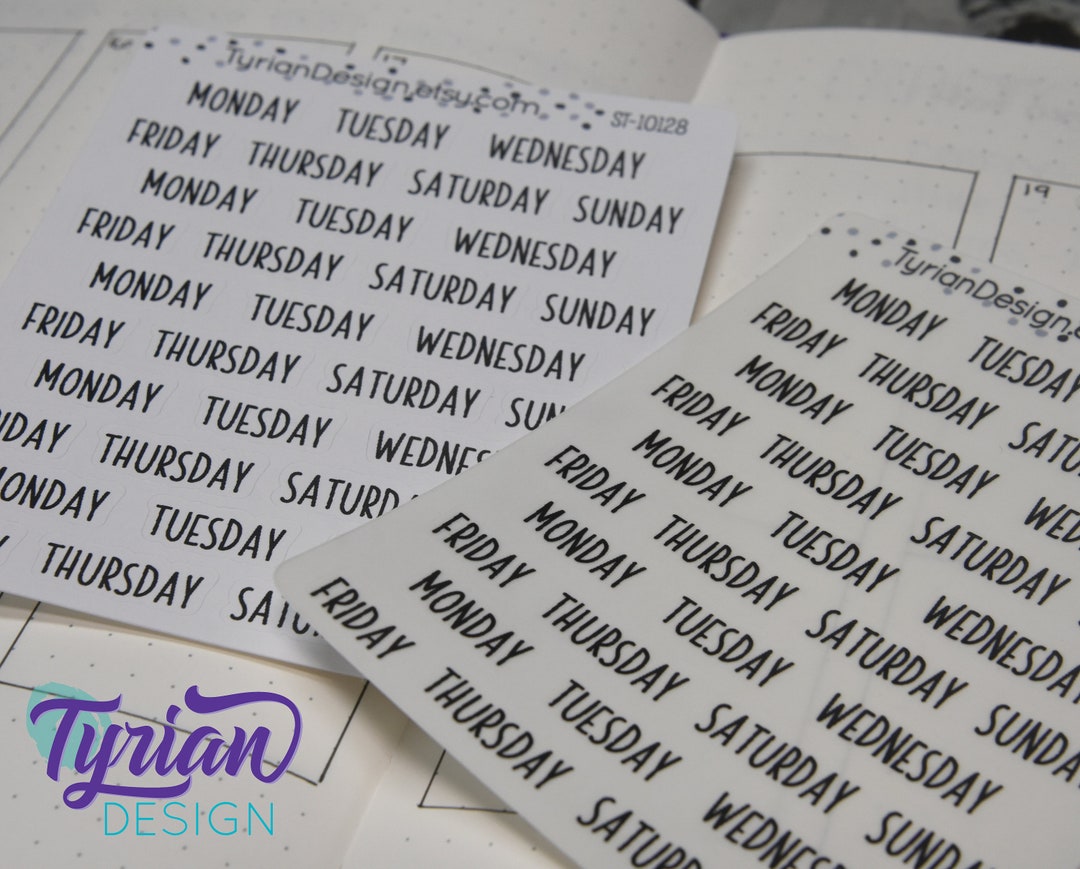 TyrianDesign.etsy.com
ST-10128
MONDAY TUESDAY WEDNESDAY
FRIDAY THURSDAY SATURDAY SUNDAY
MONDAY TUESDAY WEDNESDAY
FRIDAY THURSDAY SATURDAY SUNDAY
MONDAY TUESDAY WEDNESDAY
FRIDAY THURSDAY SATURDAY SUN
MONDAY TUESDAY WEDNES
IDAY THURSDAY SATURD
ONDAY TUESDAY
Y THURSDAY SATU
19
TyrianDesign.e
MONDAY TUESDAY
FRIDAY THURSDAY SATU
MONDAY TUESDAY WED
FRIDAY THURSDAY SATURDAY
MONDAY TUESDAY WEDNESDAY
FRIDAY THURSDAY SATURDAY SUNDA
MONDAY TUESDAY WEDNESDAY
FRIDAY THURSDAY SATURDAY SUNDA
MONDAY TUESDAY WEDNES
FRIDAY THURSDAY SATURD
Tyrian
DESIGN